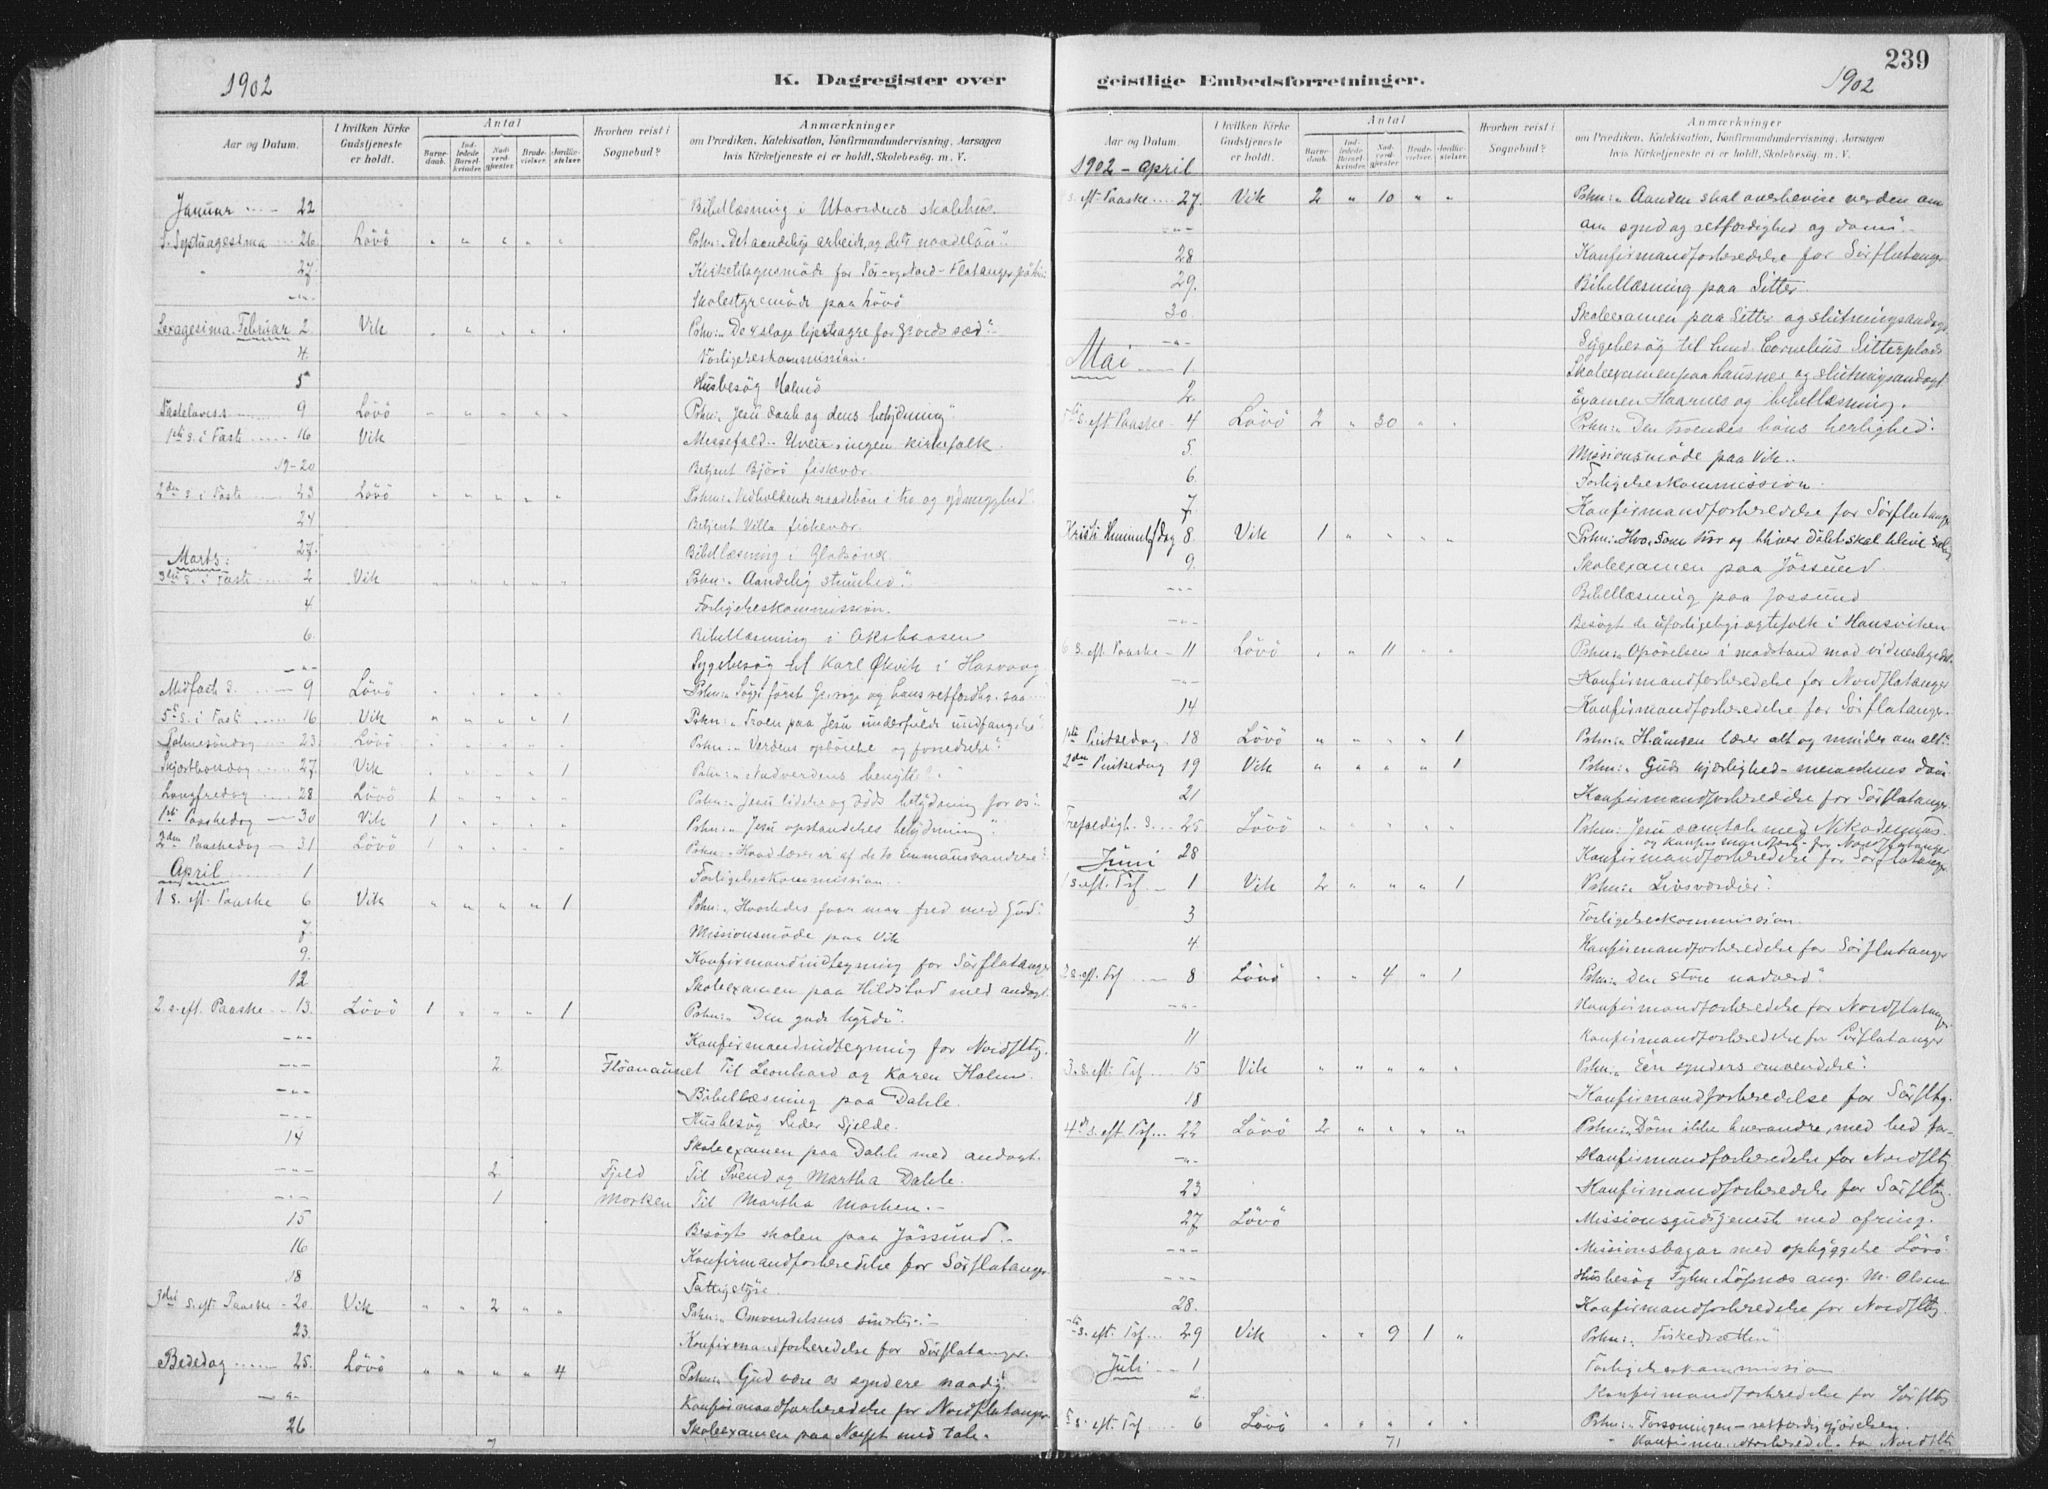 1902
K. Dagregister over
Aar og Datum.
I hvilken Kirke Gudstjeneste er holdt.
Antal
Barne-daab.
Ind-ledede Barsel-kvinder.
Nad-verd-gjæster.
Brude-vielser.
Jordfæ-stelser.
Hvorhen reist i Sognebud?
Anmærkninger
om Prædiken, Katekisation, Konfirmandundervisning, Aarsagen
hvis Kirketjeneste ei er holdt, Skolebesøg, m. V.
Januar 22 Bibellæsning i Utvordens skolehus.
S. Septuagesima 26 Lövö " " " " " Pshn: Det aandelige arbeide og dets naadelön"
" 27 Kirketilsynsmöde for Sör- og Nord-Flatanger
-"- Skolestyremöde paa Lövö
Sexagesima. Februar 2. Vik " " " " " Pshn: De 4 slags hjerteagre for Guds sæd"
4. Forligelseskommission.
5 Husbesög
Fastelavns s. 9 Lövö " " " " " Pshn: Jesu daab og dens betydning"
1ste s. i Faste 16 Vik Messefald. Uveir, ingen kirkefolk.
19-20 Betjent Björö fiskevær.
2den s. i Faste 23 Lövö " " " " " Pshn: Vedholdende naadebön i tro og ydmyghed"
24 Betjent Villa fiskevær.
27. Bibellæsning i Glasöna
Marts:
3die s. i Faste 2 Vik " " " " " Pshn: Aandelig stumhed"
4 Forligelseskommission.
6. Bibellæsning i
-"- Sygebesög til Karl Økvik i Hasvaag
Midfaste s. 9 Lövö " " " " " Pshn: Söger först Gs. rige og hans retfærdhg. saa
5te s. i Faste 16 Vik " " " " 1 Pshn: Troen paa Jesu underfulde undfangelse"
Palmesöndag 23. Lövö " " " " " Pshn: Verdens ophöielse og fornedrelse"
Skjærthorsdag 27. Vik " " " " 1 Pshn: Nadverdens
Langfredag 28 Lövö 1 " " " " Pshn: Jesu lidelse og döds betydning for os"
1ste Paaskedag 30 Vik 1 " " " " Pshn: Jesu opstandelses betydning"
2den Paaskedag 31 Lövö 1 " " " " Pshn: Hvad lærer vi af de to Emmausvandrere"
April 1 Forligelseskommission
1 s. eft. Paaske 6 Vik " " " " 1 Pshn: Hvorledes faar man fred med Gud"
7. Missionsmöde paa Vik
9. Konfirmandindtegning for Sörflatanger
12 Skoleexamen paa Hildstad med andagt.
2 s. eft. Paaske 13. Lövö 1 " " " 1 Pshn: Den gode hyrde".
-"- Konfirmandindtegning for Nordfltg.
-"- 2 Flöanaunet Til Leonhard og Karen Holm.
-"- Bibellæsning paa Dahle.
-"- Husbesög Peder Sjelde.
14 Skoleexamen paa Dahle med andagt.
-"- 2 Fjeld Til Svend og Martha Dahle.
-"- 1 Morken Til Martha Morken.
15 Besögt skolen paa Jössund.
16 Konfirmandforberedelse for Sörflatanger
18 Fattigstyre.
3die s. eft. Paaske 20. Vik " " 2 " " Pshn: Omvendelsens smerte"
23. Konfirmandforberedelse for Sörflatanger.
Bededag 25. Lövö " " " " 4 Pshn: Gud være os syndere naadig"
-"- Konfirmandforberedelse for Nordflatanger
26 Skoleexamen paa Næset med tale.

239
geistlige Embedsforretninger.
1902
Aar og Datum.
I hvilken Kirke Gudstjeneste er holdt.
Antal
Barne-daab.
Ind-ledede Barsel-kvinder.
Nad-verd-gjæster.
Brude-vielser.
Jordfæ-stelser.
Hvorhen reist i Sognebud?
Anmærkninger
om Prædiken, Katekisation, Konfirmandundervisning, Aarsagen
hvis Kirketjeneste ei er holdt, Skolebesøg, m. V.
1902 - April
s. eft. Paaske 27. Vik 2 " 10 " " Pshn: Aanden skal overbevise verden om
-"- om synd og retfærdighed og dom".
28 Konfirmandforberedelse for Sörflatanger
29. Bibellæsning paa Sitter.
30. Skoleexamen paa Sitter og slutningsandagt.
-"- Sygebesög til Cornelius Sitterplads
Mai 1. Skoleexamen paa Lausnes og slutningsandagt
2. Examen Haarnes og bibellæsning.
s. eft. Paaske 4 Lövö 2 " 30 " " Pshn: Den troendes haabs herlighed.
5. Missionsmöde paa Vik.
6. Forligelseskommission.
7. Konfirmandforberedelse for Sörflatanger
Kristi Himmelfdag 8. Vik 1 " " " " Pshn: Hvo, som tror og bliver döbt skal blive salig
9. Skoleexamen paa Jössund.
-"- Bibellæsning paa Jössund
-"- Besögt de uforligelige ægtefolk i Hansviken
6 s. eft. Paaske 11 Lövö " " 11 " " Pshn:
-"- Konfirmandforberedelse for Nordflatanger
14 Konfirmandforberedelse for Sörflatanger.
1ste Pintsedag 18 Lövö " " " " 1 Pshn: H. aanden lærer alt og minder om alt"
2den Pintsedag 19 Vik " " " " 1 Pshn: Guds kjærlighed - menneskenes dom
21 Konfirmandforberedelse for Sörflatanger.
Trefoldigh. s. 25 Lövö " " " " " Pshn: Jesu samtale med Nikodemus.
og konfirmandforb. for Nordflatanger
28 Konfirmandforberedelse for Sörflatanger.
Juni
1 s. eft. Trf. 1 Vik 2 " " " 1 Pshn: Livsværdier".
3 Forligelseskommission.
4 Konfirmandforberedelse for Sörflatanger
2 s. eft. Trf. 8 Lövö " " 4 " 1 Pshn: Den store nadverd".
-"- Konfirmandforberedelse for Nordflatanger
11 Konfirmandforberedelse for Sörflatanger
3. s. eft. Trf. 15 Vik " " " " " Pshn: Een synders omvendelse"
18 Konfirmandforberedelse for Sörfltg.
4de s. eft. Trf. 22 Lövö 2 " " " " Pshn: Döm ikke hverandre, med
-"- Konfirmandforberedelse for Nordfltg
23 Konfirmandforberedelse for Sörfltg.
27 Lövö Missionsgudstjeneste med ofring.
-"- Missionsbazar med opbyggelse Lövö.
-"- Husbesög Löfsnæs ang. M. Olsen
28. Konfirmandforberedelse for Nordfltg.
s. eft. Trf. 29 Vik " " 9 1 " Pshn: Fiskedrætten"
Juli 1 Forligelseskommission
2. Konfirmandforberedelse for Sörfltg
s. eft. Trf. 6 Lövö " " " " " Pshn: Forsoningen - retfærdiggjörelsen.
71
" Konfirmandforberedelse for Nordfltg